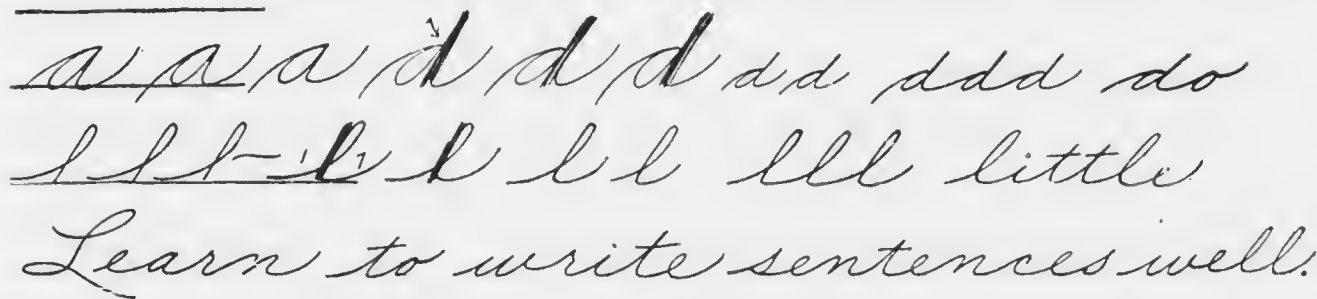 a a a d d d d d ddd do
l l l l l l l lll little
Learn to write sentences well.